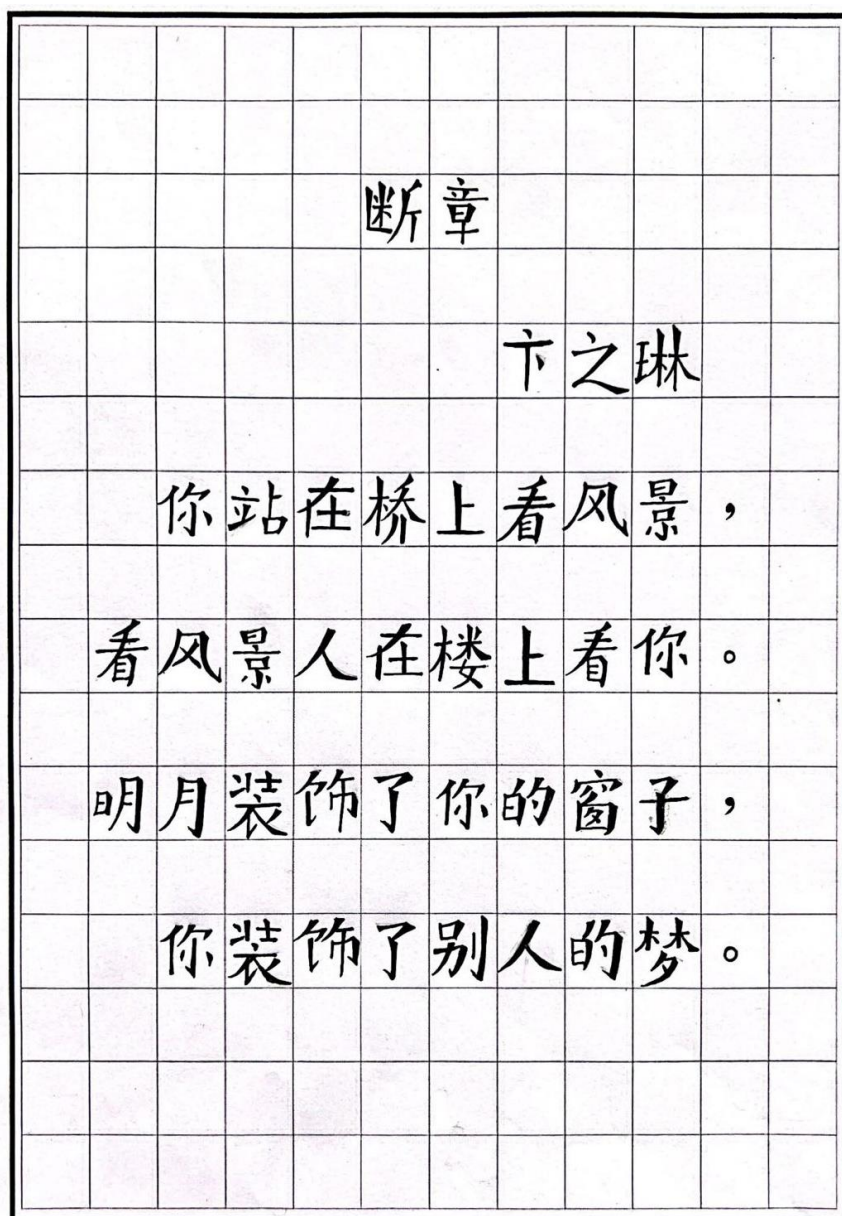 断章
卞之琳
你站在桥上看风景，
看风景人在楼上看你。
明月装饰了你的窗子，
你装饰了别人的梦。